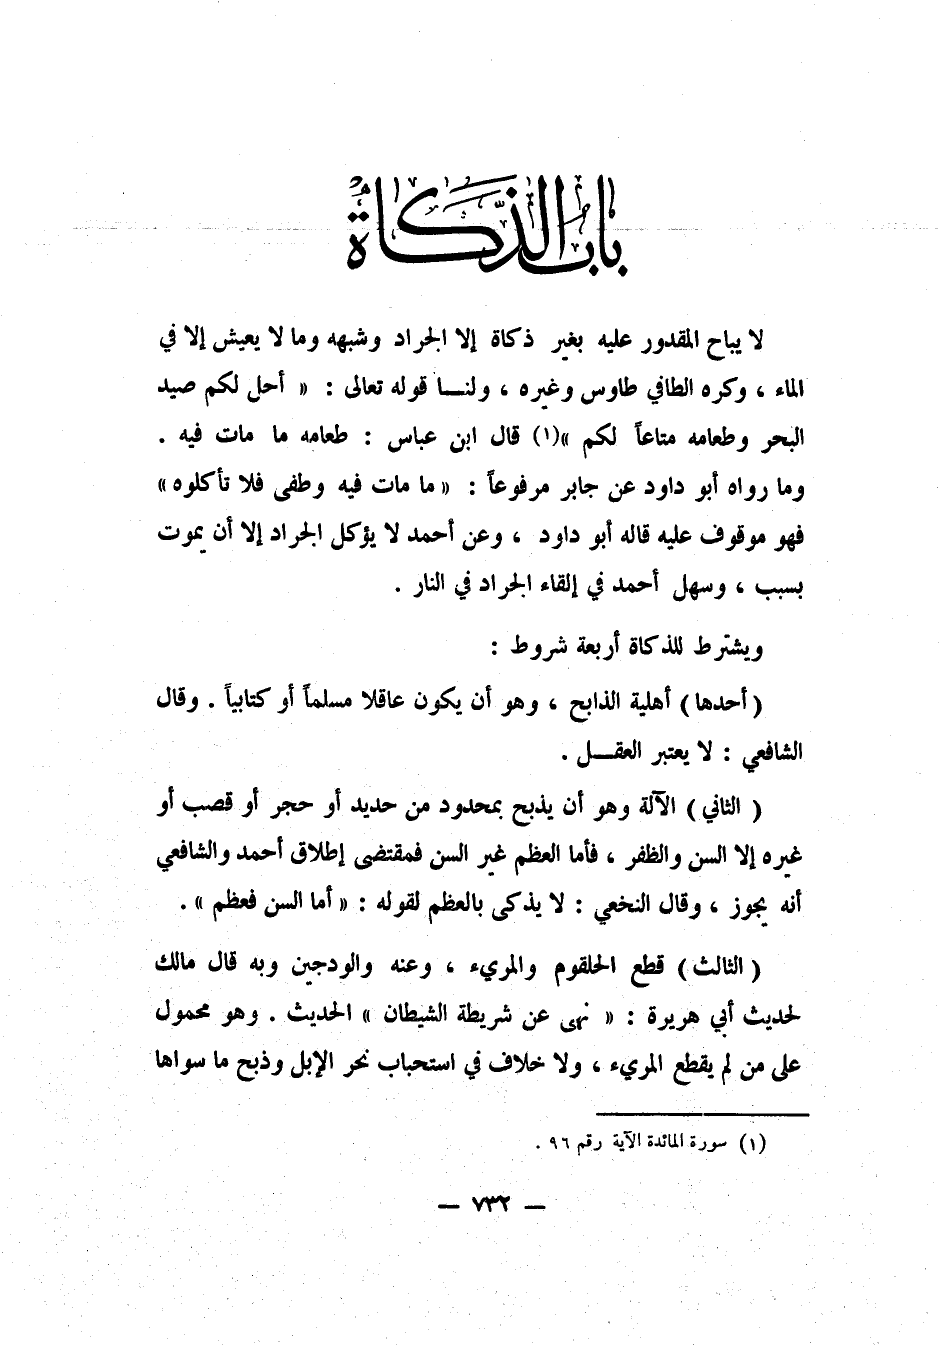 باب الذكاة
لا يباح المقدور عليه بغير ذكاة إلا الجراد وشبهه وما لا يعيش إلا في
الماء ، وكره الطافي طاوس وغيره ، ولنــا قوله تعالى : « أحل لكم صيد
البحر وطعامه متاعاً لكم »(١) قال ابن عباس : طعامه ما مات فيه .
وما رواه أبو داود عن جابر مرفوعاً : « ما مات فيه وطفى فلا تأكلوه »
فهو موقوف عليه قاله أبو داود ، وعن أحمد لا يؤكل الجراد إلا أن يموت
بسبب ، وسهل أحمد في إلقاء الجراد في النار .
ويشترط للذكاة أربعة شروط :
( أحدها ) أهلية الذابح ، وهو أن يكون عاقلا مسلماً أو كتابياً . وقال
الشافعي : لا يعتبر العقــل .
( الثاني ) الآلة وهو أن يذبح بمحدود من حديد أو حجر أو قصب أو
غيره إلا السن والظفر ، فأما العظم غير السن فمقتضى إطلاق أحمد والشافعي
أنه يجوز ، وقال النخعي : لا يذكى بالعظم لقوله : « أما السن فعظم » .
( الثالث ) قطع الحلقوم والمريء ، وعنه والودجين وبه قال مالك
لحديث أبي هريرة : « نهى عن شريطة الشيطان » الحديث . وهو محمول
على من لم يقطع المريء ، ولا خلاف في استحباب نحر الإبل وذبح ما سواها
(١) سورة المائدة الآية رقم ٩٦ .
— ٧٣٢ —